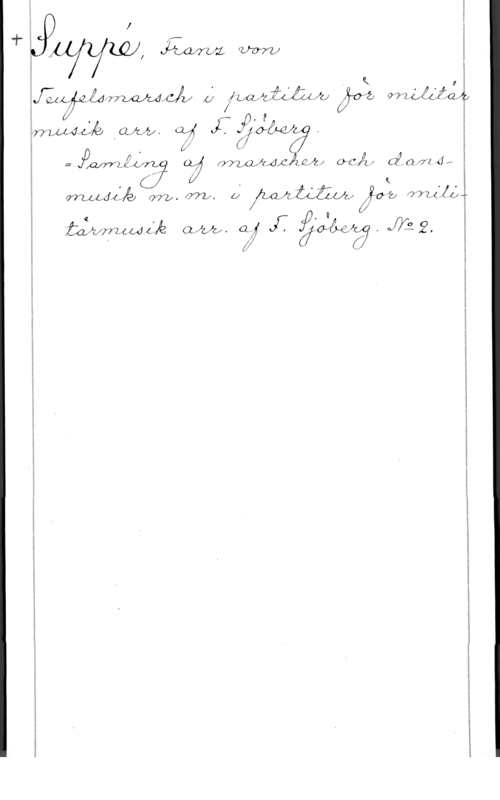 + Suppé, Franz von
Teufelsmarsch i partitur för militär
musik arr. af F. Sjöberg.
= Samling af marscher och dans-
musik m. m. i partitur för mili-
tärmusik arr. af F. Sjöberg. № 2.